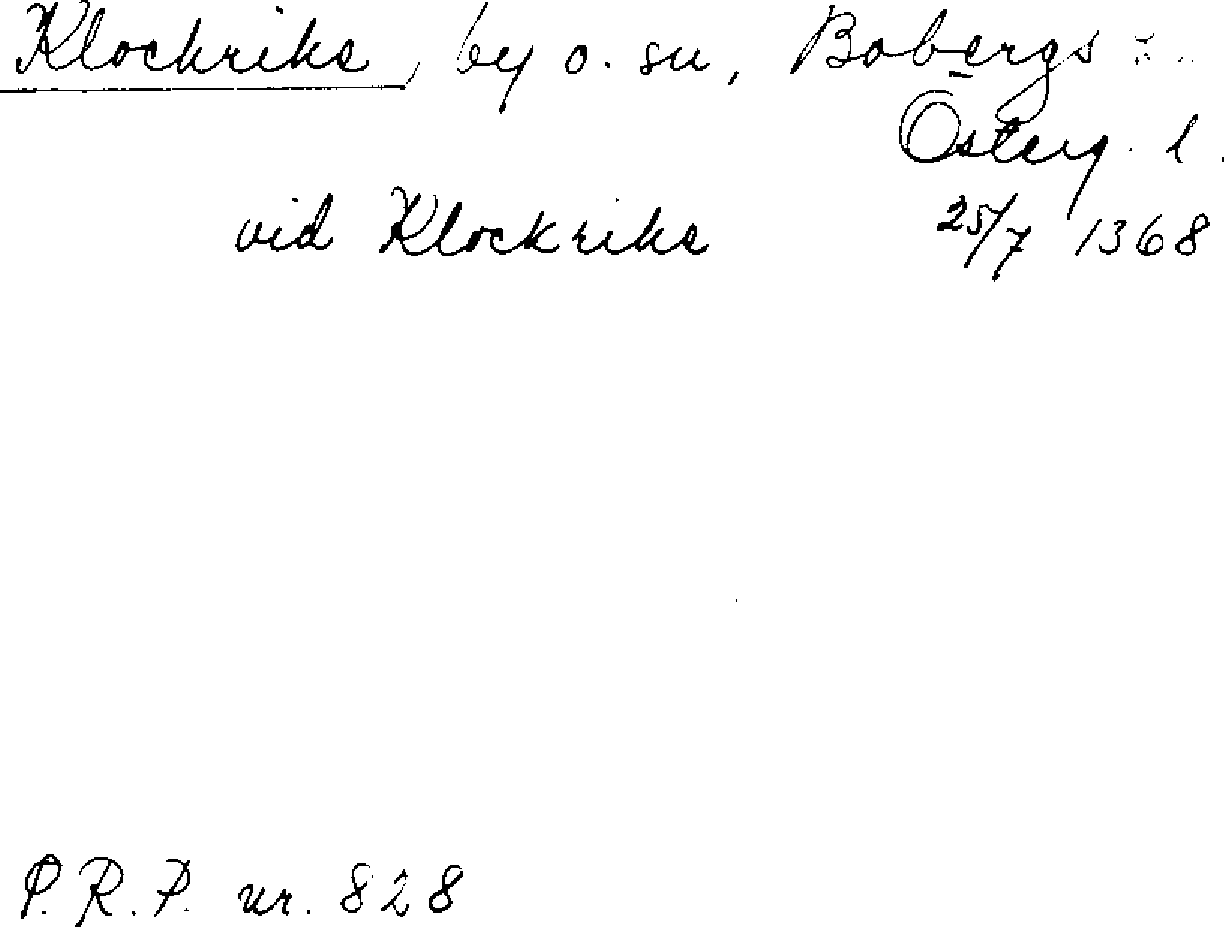 Klockrike, by o. sn, Bobergs
Österg. l.
vid Klockrike 25/7 1368
P.R.P. nr. 828